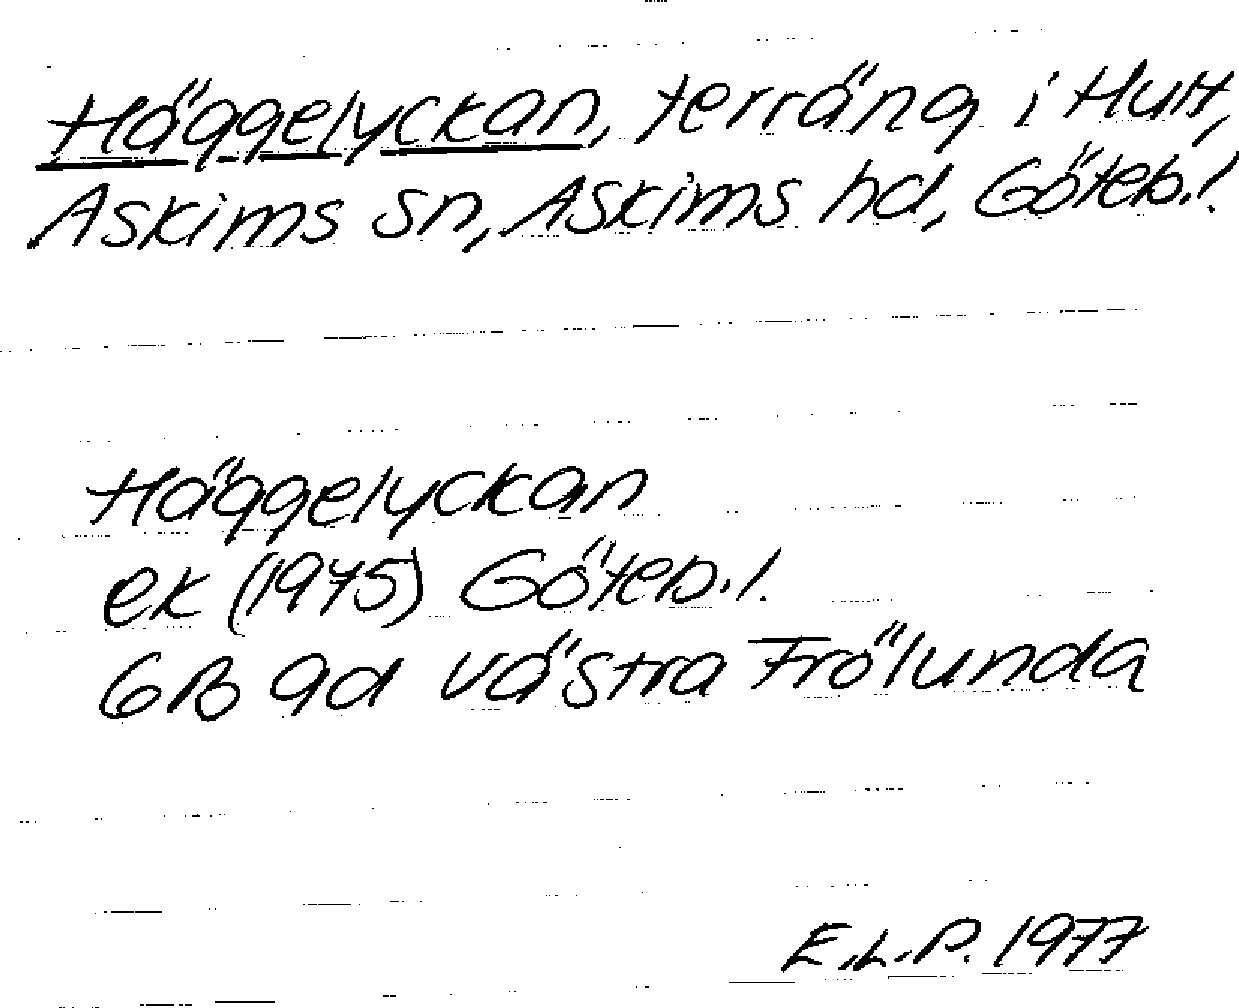 Häggelyckan, terräng i Hult,
Askims sn, Askims hd, Göteb.l.
Häggelyckan
ek (1975) Göteb.l.
6B 9d Västra Frölunda
E.L.P. 1977